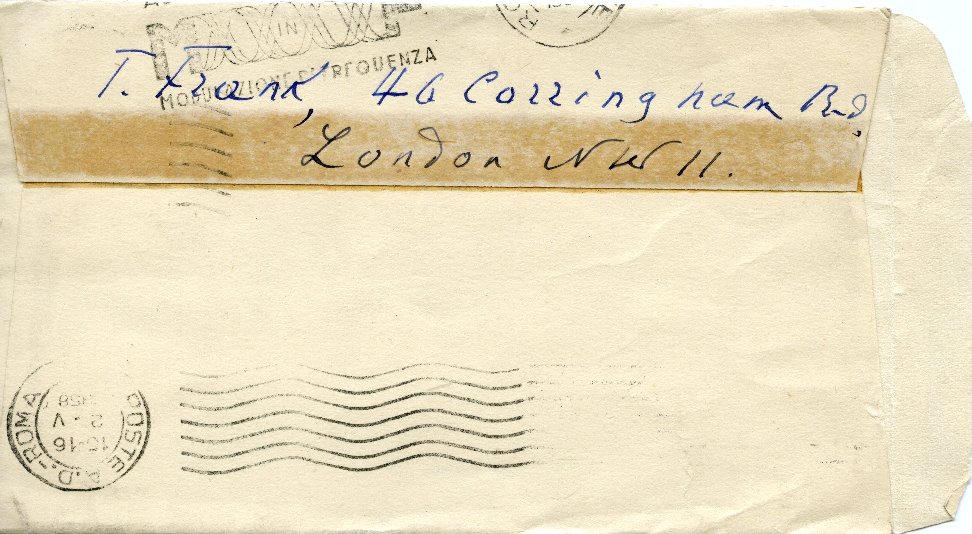 IN
MODULAZIONE DI FREQUENZA
T. Frank, 46 Corringham Rd.
London NW 11.
POSTE A.D. - ROMA
15-16
2 - V
1958